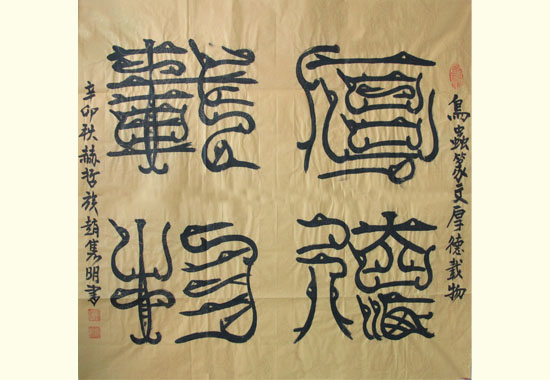 鳥蟲篆文厚德載物
厚德
載物
辛卯秋赫哲族趙雋明書